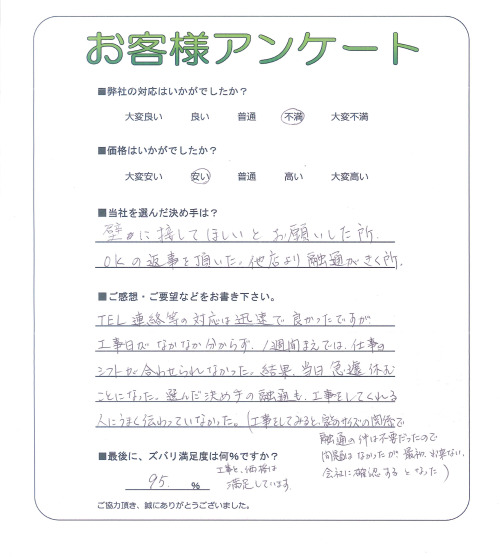 お客様アンケート
■弊社の対応はいかがでしたか?
大変良い 良い 普通 不満 大変不満
■価格はいかがでしたか?
大変安い 安い 普通 高い 大変高い
■当社を選んだ決め手は?
壁に接してほしいとお願いした所、
OKの返事を頂いた。他店より融通がきく所。
■ご感想・ご要望などをお書き下さい。
TEL連絡等の対応は迅速で良かったですが、
工事日がなかなか分からず、1週間まえでは、仕事の
シフトが合わせられなかった。結果、当日急遽休む
ことになった。選んだ決め手の融通も、工事をしてくれる
人にうまく伝わっていなかった。(工事をしてみると、サイズの関係で
融通の件は不要だったので
問題はなかったが、最初、出来ない、
会社に確認するとなった)
■最後に、ズバリ満足度は何%ですか?
95. %
工事と、価格は
満足しています。
ご協力頂き、誠にありがとうございました。